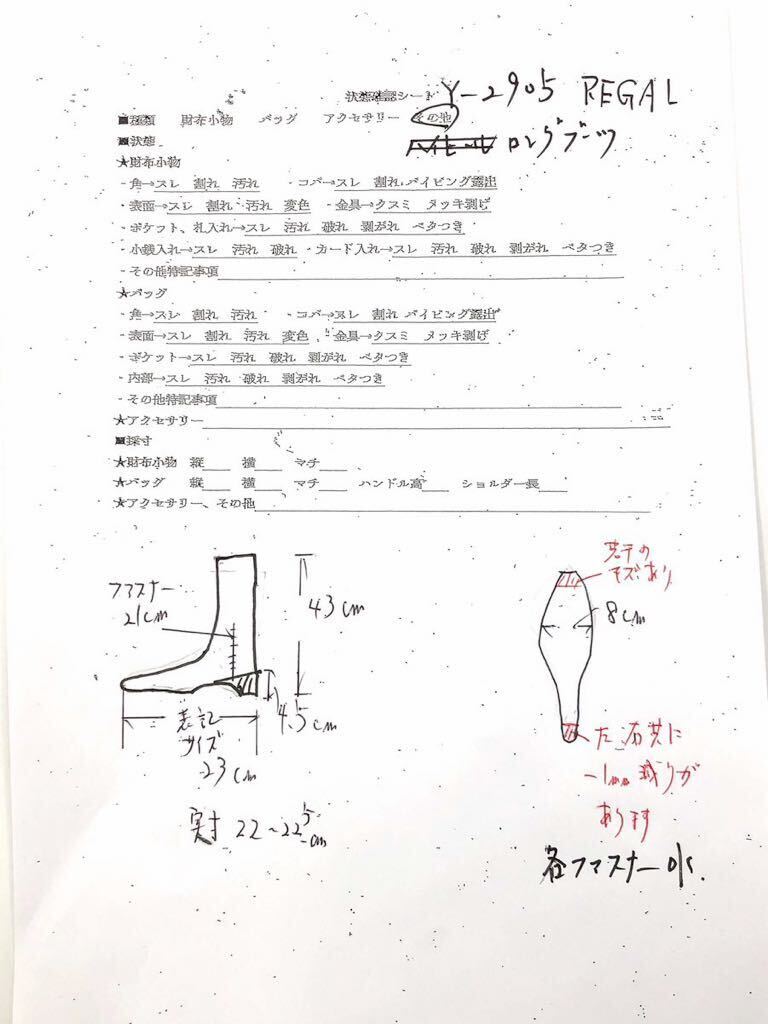 状態確認シート Y-2905 REGAL
■種類 財布小物 バッグ アクセサリー その他
ロングブーツ
■状態
★財布小物
・角→スレ 割れ 汚れ ・コバ→スレ 割れ パイピング露出
・表面→スレ 割れ 汚れ 変色 ・金具→クスミ メッキ剥げ
・ポケット、札入れ→スレ 汚れ 破れ 剥がれ ベタつき
・小銭入れ→スレ 汚れ 破れ ・カード入れ→スレ 汚れ 破れ 剥がれ ベタつき
・その他特記事項
★バッグ
・角→スレ 割れ 汚れ ・コバ→スレ 割れ パイピング露出
・表面→スレ 割れ 汚れ 変色 ・金具→クスミ メッキ剥げ
・ポケット→スレ 汚れ 破れ 剥がれ ベタつき
・内部→スレ 汚れ 破れ 剥がれ ベタつき
・その他特記事項
★アクセサリー
■採寸
★財布小物 縦 横 マチ
★バッグ 縦 横 マチ ハンドル高 ショルダー長
★アクセサリー、その他
ファスナー
21cm
43cm
4.5cm
表記
サイズ
23cm
実寸 22~22.5cm
若干の
キズあり
8cm
左右共に
-1mm減りが
あります
各ファスナーok.